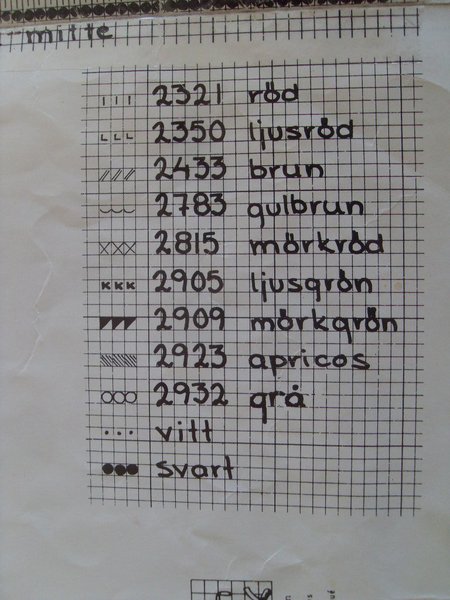 mitte
2321 röd
2350 ljusröd
2433 brun
2783 gulbrun
2815 mörkröd
2905 ljusgrön
2909 mörkgrön
2923 apricos
2932 grå
vitt
svart